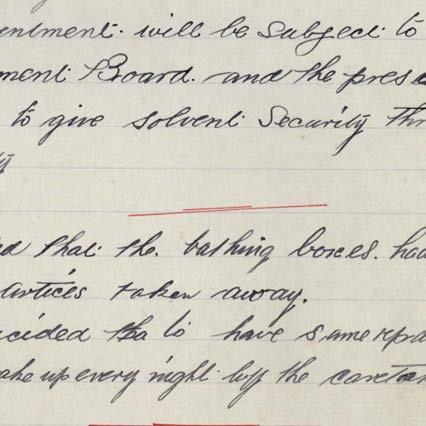 ntment. will be subject to
ment Board. and the prese
to give solvent Security thr
ty
ed that the. bathing boxes. had
Articles taken away.
cided tha to have same repa
ake up every night by the caretak